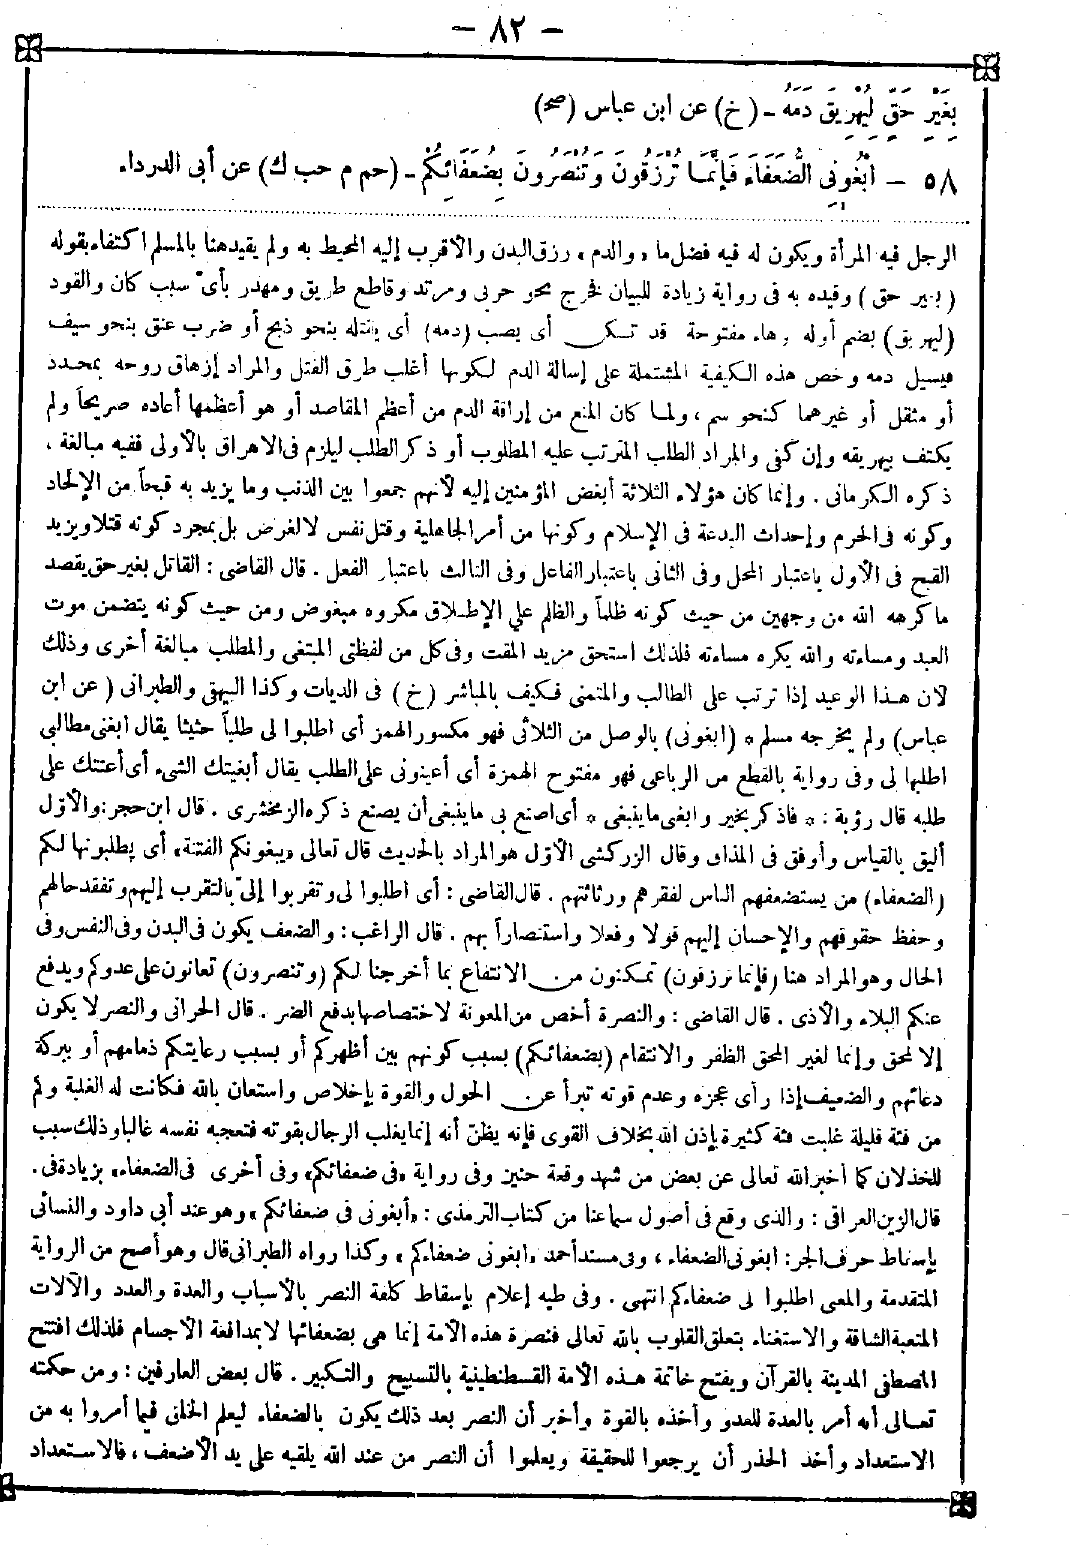 - ٨٢ -
بِغَيْرِ حَقٍّ لِيُهْرِيقَ دَمَهُ - (خ) عن ابن عباس (صح)
٥٨ - أَبْغُونِي الضُّعَفَاءَ فَإِنَّمَا تُرْزَقُونَ وَتُنْصَرُونَ بِضُعَفَائِكُمْ - (حم م حب ك) عن أبى الدرداء
الرجل فيه المرأة ويكون له فيه فضل ما «والدم» رزق البدن والأقرب إليه المحيط به ولم يقيد هنا بالمسلم اكتفاء بقوله
(بغير حق) وقيده به فى رواية زيادة للبيان فخرج نحو حربى ومرتد وقاطع طريق ومهدر بأى سبب كان والقود
(ليهريق) بضم أوله وهاء مفتوحة قد تسكن أى يصب (دمه) أى يقتله بنحو ذبح أو ضرب عنق بنحو سيف
فيسيل دمه وخص هذه الكيفية المشتملة على إسالة الدم لكونها أغلب طرق القتل والمراد إزهاق روحه بمحدد
أو مثقل أو غيرهما كنحو سم ، ولما كان المنع من إراقة الدم من أعظم المقاصد أو هو أعظمها أعاده صريحاً ولم
يكتف بيهريقه وإن كفى والمراد الطلب المترتب عليه المطلوب أو ذكر الطلب ليلزم فى الاهراق بالأولى ففيه مبالغة ،
ذكره الكرمانى . وإنما كان هؤلاء الثلاثة أبغض المؤمنين إليه لأنهم جمعوا بين الذنب وما يزيد به قبحاً من الإلحاد
وكونه فى الحرم وإحداث البدعة فى الإسلام وكونها من أمر الجاهلية وقتل نفس لا لغرض بل بمجرد كونه قتلا ويزيد
القبح فى الأول باعتبار المحل وفى الثانى باعتبار الفاعل وفى الثالث باعتبار الفعل . قال القاضى : القاتل بغير حق يقصد
ما كرهه الله من وجهين من حيث كونه ظلماً والظلم على الإطلاق مكروه مبغوض ومن حيث كونه يتضمن موت
العبد ومساءته والله يكره مساءته فلذلك استحق مزيد المقت وفى كل من لفظتى المبتغى والمطلب مبالغة أخرى وذلك
لان هذا الوعيد إذا ترتب على الطالب والمتمنى فكيف بالمباشر (خ) فى الديات وكذا البيهقى والطبرانى (عن ابن
عباس) ولم يخرجه مسلم * (ابغونى) بالوصل من الثلاثى فهو مكسور الهمز أى اطلبوا لى طلباً حثيثا يقال ابغنى مطالبى
اطلبها لى وفى رواية بالقطع من الرباعى فهو مفتوح الهمزة أى أعينونى على الطلب يقال أبغيتك الشىء أى أعنتك على
طلبه قال رؤبة : * فاذكر بخير وابغى ما ينبغى * أى اصنع بى ما ينبغى أن يصنع ذكره الزمخشرى . قال ابن حجر : والأول
أليق بالقياس وأوفق فى المذاق وقال الزركشى الأول هو المراد بالحديث قال تعالى «يبغونكم الفتنة» أى يطلبونها لكم
(الضعفاء) من يستضعفهم الناس لفقرهم ورثاثتهم . قال القاضى : أى اطلبوا لى وتقربوا إلىّ بالتقرب إليهم وتفقد حالهم
وحفظ حقوقهم والإحسان إليهم قولا وفعلا واستنصاراً بهم . قال الراغب : والضعف يكون فى البدن وفى النفس وفى
الحال وهو المراد هنا (فإنما ترزقون) تمكنون من الانتفاع بما أخرجنا لكم (وتنصرون) تعانون على عدوكم ويدفع
عنكم البلاء والأذى . قال القاضى : والنصرة أخص من المعونة لاختصاصها بدفع الضر . قال الحرانى والنصر لا يكون
إلا لمحق وإنما لغير المحق الظفر والانتقام (بضعفائكم) بسبب كونهم بين أظهركم أو بسبب رعايتكم ذمامهم أو ببركة
دعائهم والضعيف إذا رأى عجزه وعدم قوته تبرأ عن الحول والقوة بإخلاص واستعان بالله فكانت له الغلبة ولم
من فئة قليلة غلبت فئة كثيرة بإذن الله بخلاف القوى فإنه يظنّ أنه إنما يغلب الرجال بقوته فتعجبه نفسه غالبا وذلك سبب
للخذلان كما أخبر الله تعالى عن بعض من شهد وقعة حنين وفى رواية «فى ضعفائكم» وفى أخرى فى الضعفاء» بزيادة فى .
قال الزين العراقى : والذى وقع فى أصول سماعنا من كتاب الترمذى : «أبغونى فى ضعفائكم» وهو عند أبى داود والنسائى
بإسقاط حرف الجر : ابغونى الضعفاء ، وفى مسند أحمد «ابغونى ضعفاءكم» وكذا رواه الطبرانى قال وهو أصح من الرواية
المتقدمة والمعنى اطلبوا لى ضعفاءكم انتهى . وفى طيه إعلام بإسقاط كلفة النصر بالأسباب والعدة والعدد والآلات
المتعبة الشاقة والاستغناء بتعلق القلوب بالله تعالى فنصرة هذه الأمة إنما هى بضعفائها لا بمدافعة الأجسام فلذلك افتتح
المصطفى المدينة بالقرآن ويفتح خاتمة هذه الأمة القسطنطينية بالتسبيح والتكبير . قال بعض العارفين : ومن حكمته
تعالى أنه أمر بالعدة للعدو وأخذه بالقوة وأخبر أن النصر بعد ذلك يكون بالضعفاء ليعلم الخلق فيما أمروا به من
الاستعداد وأخذ الحذر أن يرجعوا للحقيقة ويعلموا أن النصر من عند الله يلقيه على يد الأضعف ، فالاستعداد